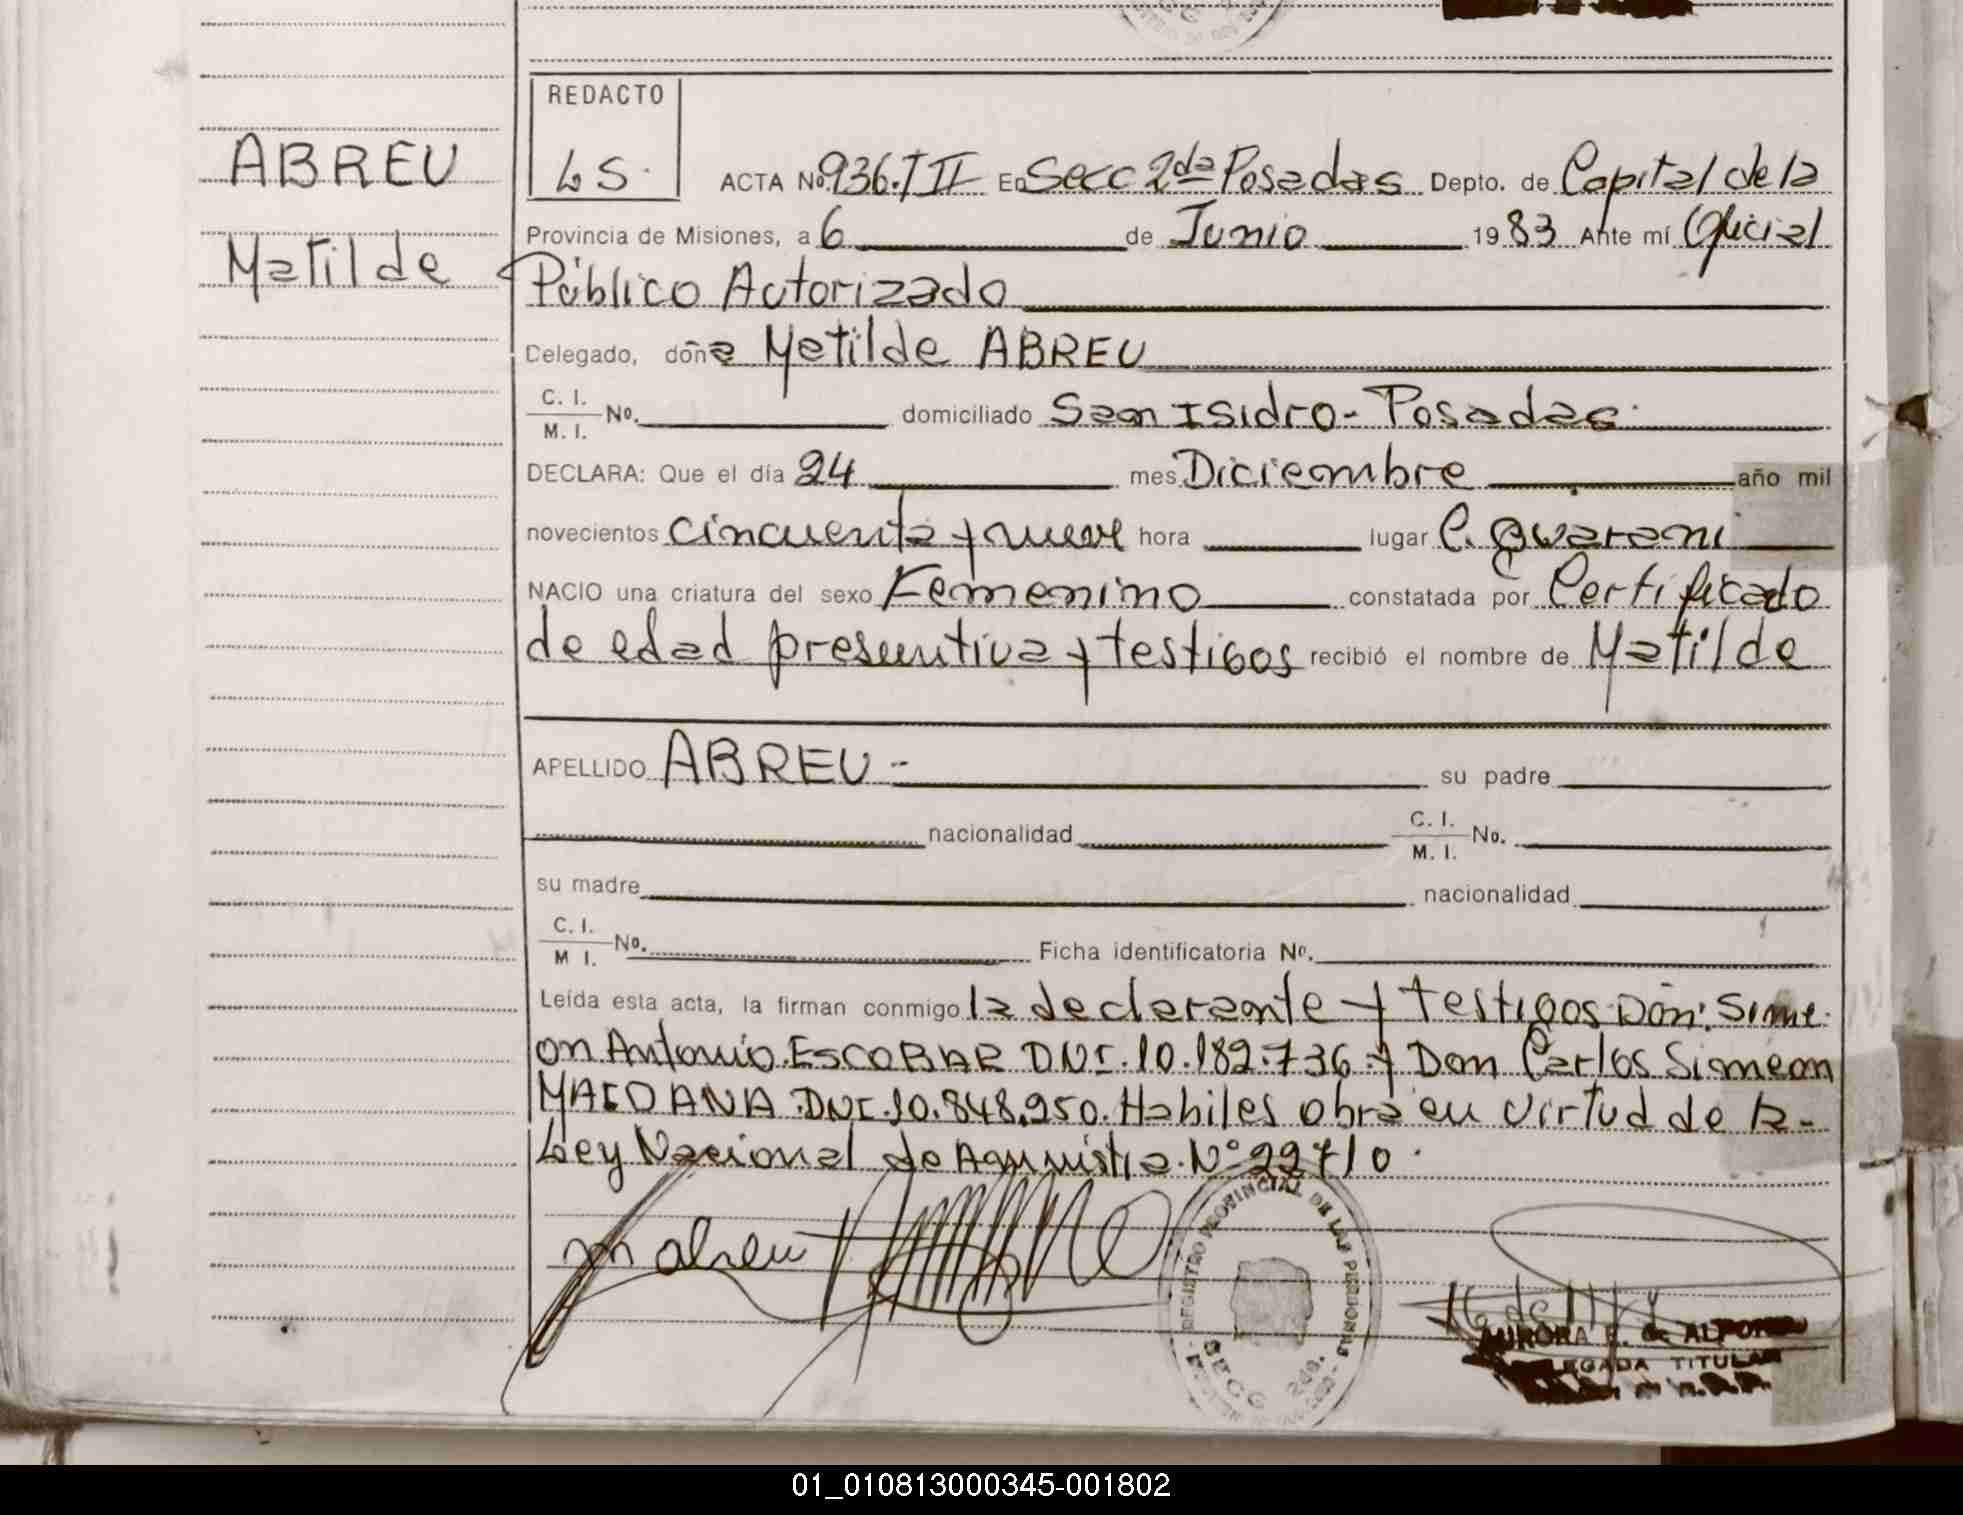 REDACTO
ABREU
LS.
ACTA Nº 936.TII En Secc 2da Posadas Depto. de Capital de la
Provincia de Misiones, a 6 de Junio 1983 Ante mí Oficial
Matilde
Público Autorizado
Delegado, doña Matilde ABREU
C. I.
M. I. No. domiciliado San Isidro - Posadas.
DECLARA: Que el día 24 mes Diciembre año mil
novecientos cincuenta y nueve hora lugar C. Guarani
NACIO una criatura del sexo Femenino constatada por Certificado
de edad presuntiva y testigos recibió el nombre de Matilde
APELLIDO ABREU - su padre
nacionalidad C. I.
M. I. No.
su madre nacionalidad
C. I.
M I. No. Ficha identificatoria No.
Leída esta acta, la firman conmigo la declarante y testigos Don: Sime
on Antonio ESCOBAR DNI.10.182.736 y Don Carlos Simeon
MAIDANA DNI.10.848.950. Habiles obra en virtud de la-
Ley Nacional de Aministia. Nº 22710.
m abreu
REGISTRO PROVINCIAL DE LAS PERSONAS
SECC 2da.
AURORA E. de
DELEGADA TITULAR
01_010813000345-001802